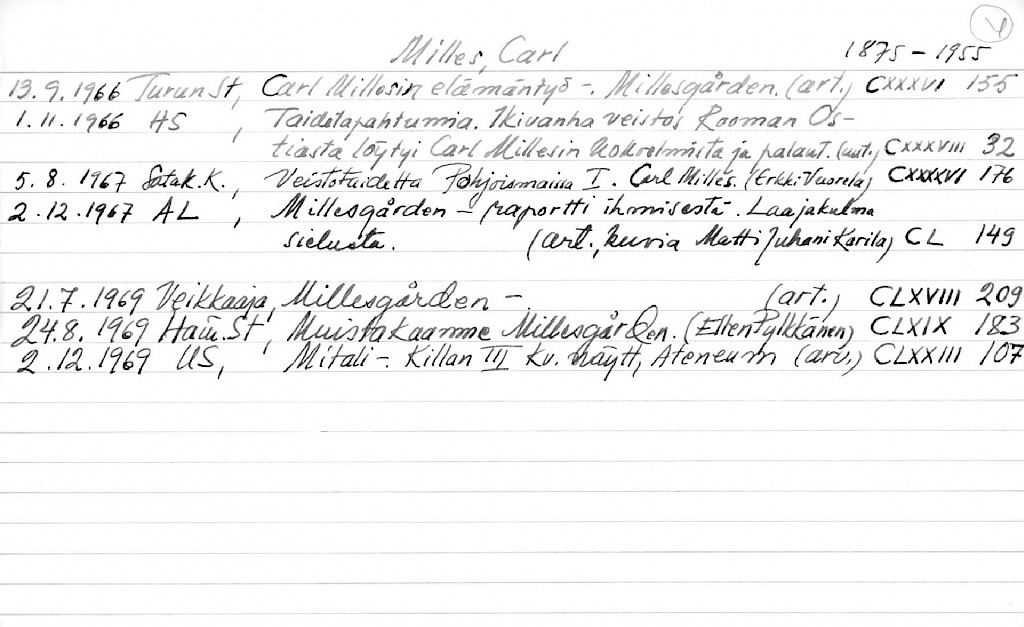 V
Milles, Carl 1875 - 1955
13. 9. 1966 Turun St, Carl Millesin elämäntyö -. Millesgården. (art.) CXXXVI 155
1. 11. 1966 HS , Taidetapahtumia. Ikivanha veistos Rooman Os-
tiasta löytyi Carl Millesin kokoelmista ja palaut. (uut.) CXXXVIII 32
5. 8. 1967 Satak. K., Veistotaidetta Pohjoismaissa I. Carl Milles. (Erkki Vuorela) CXXXXVI 176
2. 12. 1967 AL , Millesgården - raportti ihmisestä. Laajakulma
sielusta. (art., kuvia Matti Juhani Karila) CL 149
21. 7. 1969 Veikkaaja, Millesgården -. (art.) CLXVIII 209
24. 8. 1969 St, Muistakaamme Millesgården. (Ellen Pylkkänen) CLXIX 183
2. 12. 1969 US, Mitali -. Killan III kv. näytt, Ateneum (arv.) CLXXIII 107